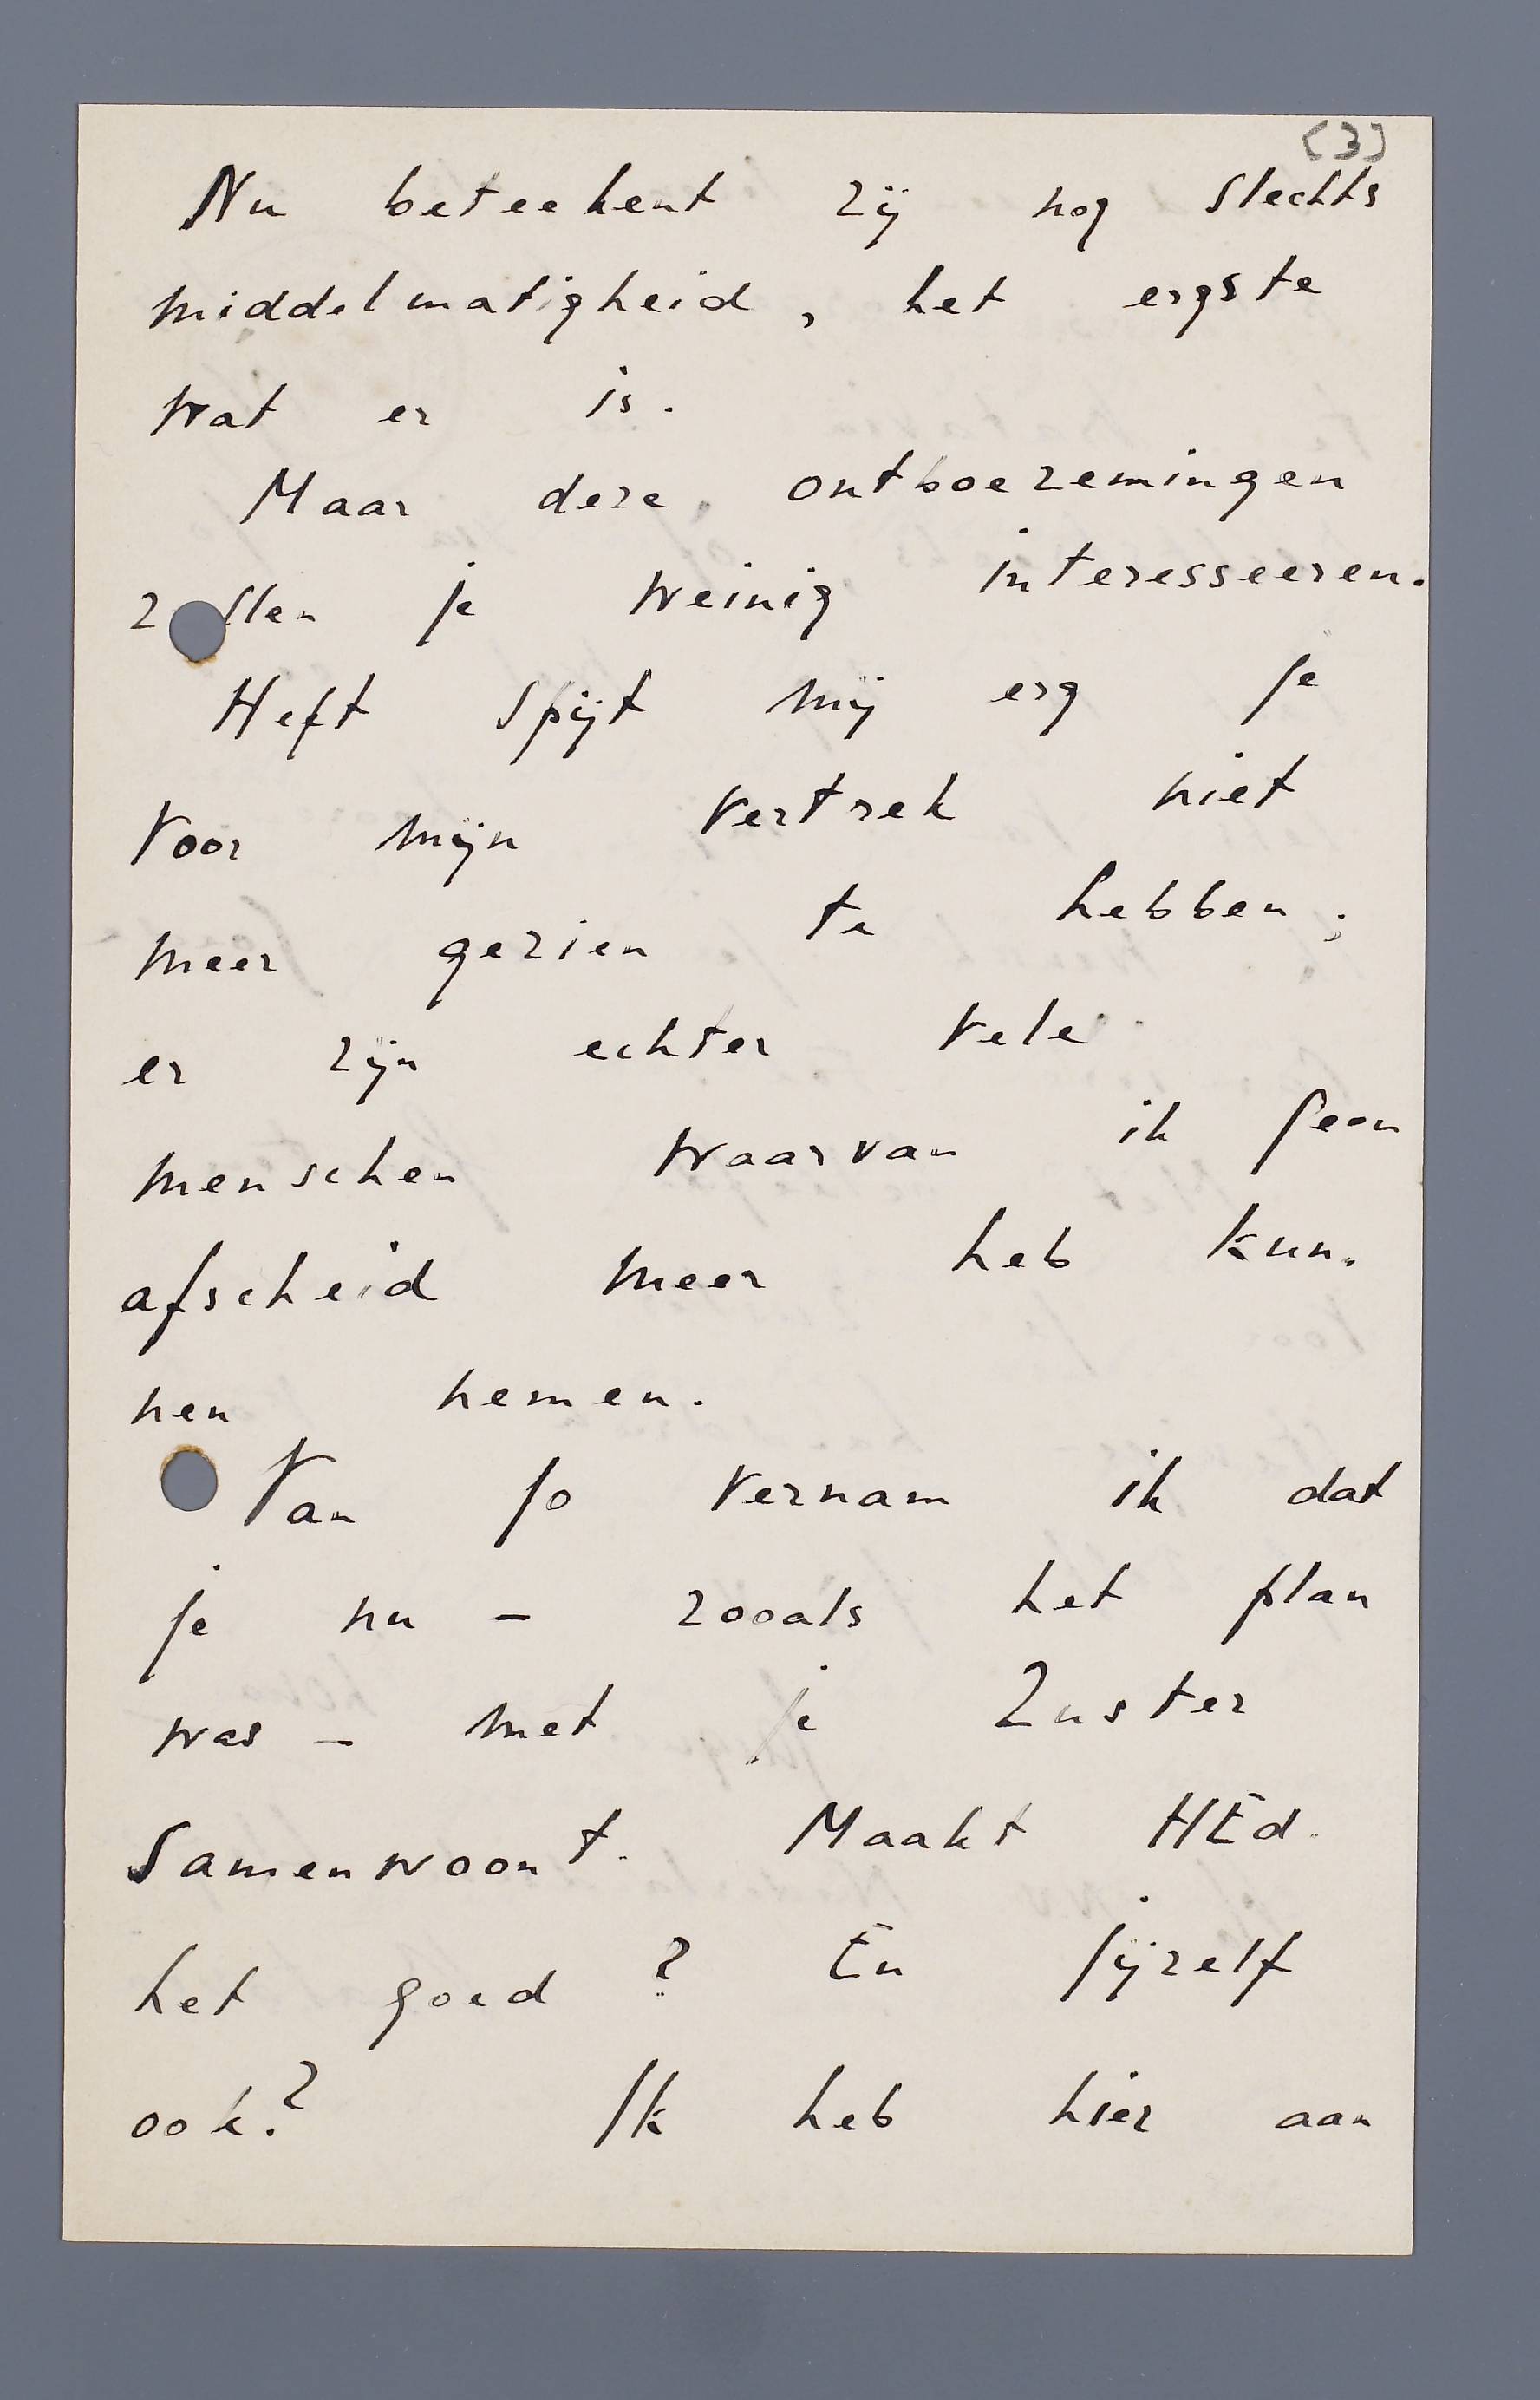 (3)
Nu beteekent zij nog slechts
middelmatigheid, het ergste
wat er is.
Maar deze ontboezemingen
z llen je weinig interesseeren.
Heft spijt mij erg je
voor mijn vertrek niet
meer gezien te hebben;
er zijn echter vele
menschen waarvan ik geen
afscheid meer heb kun-
nen nemen.
Van Jo vernam ik dat
je nu - zooals het plan
was - met je Zuster
samenwoont. Maakt HEd.
het goed? En jijzelf
ook? Ik heb hier aan